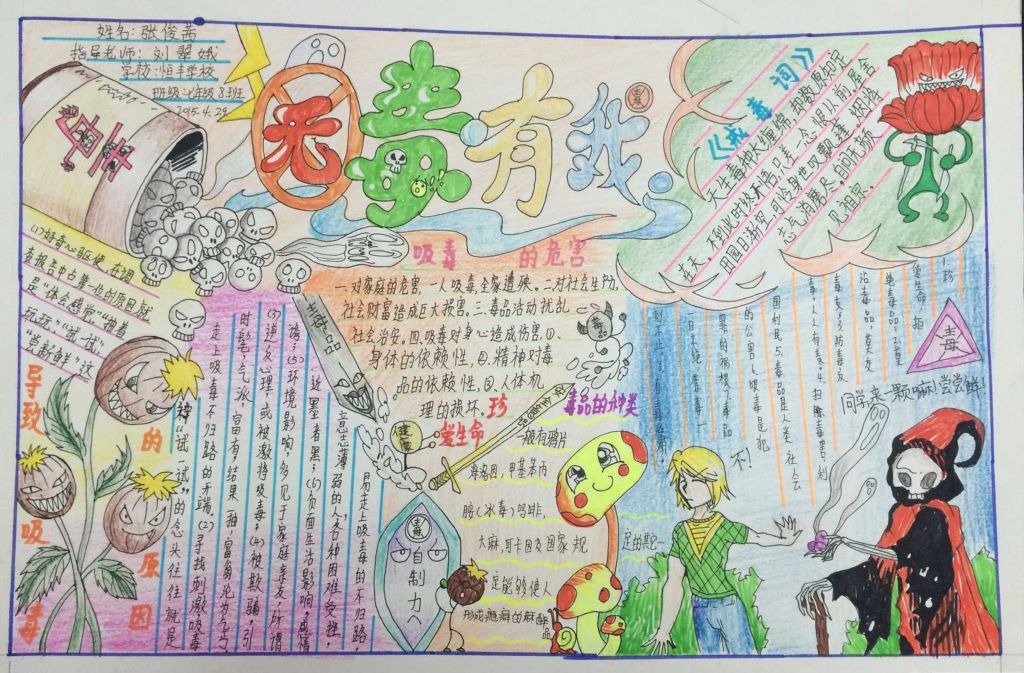 姓名：张俊茜
指导老师：刘翠娥
学校：恒丰学校
班级：七年级8班
2015.4.29
无毒有我
毒
《戒毒词》
天生毒种太缠绵，抛数原知足
不到此时终不悟，只差一念误从前，屋舍
田园日渐穷，可怜身世叹飘蓬，烟将
志气消磨尽，自问无颜
见祖宗。
吸毒的危害
一.对家庭的危害，一人吸毒，全家遭殃。二.对社会生产力，
社会财富造成巨大损害。三.毒品活动扰乱
社会治安。四.吸毒对身心造成伤害，①.
身体的依赖性，②.精神对毒
品的依赖性，③.人体机
理的损坏.
导致吸毒的原因
(1)好奇心驱使，在调
查报告中占第一位的原因就
是“体会感觉”“抱着
玩玩”“试试”
“尝新鲜”这
种“试试”的念头往往就是
走上吸毒不归路的开端。(2)寻找刺激吸毒
时髦，气派、富有，结果
(3)逆反心理，或被激将吸毒；(4)被欺骗，引
诱；(5)环境影响，多见于家庭亲友，所谓
近墨者黑；(6)负面生活影响，感情
意志薄弱的人，各种困难受挫，
易走上吸毒的不归路，
毒品
健康
珍爱生命
毒
自制力
毒品
毒品的种类
一般有鸦片
海洛因，甲基苯丙
胺（冰毒）吗啡，
大麻，可卡因及国家规
定的其它一
足能够使人
形成瘾癖的麻醉品
1.珍
爱生命，拒
绝毒品，2.莫
沾毒品，莫交
毒友，3.防毒反
毒，人人有责。4.扫除毒害，利
国利民 5.毒品是人类社会
的公害，吸毒是犯
罪的祸根，7.毒品一
日不绝，禁毒一
刻不止，
不！
毒
同学来一颗嘛！尝尝鲜！